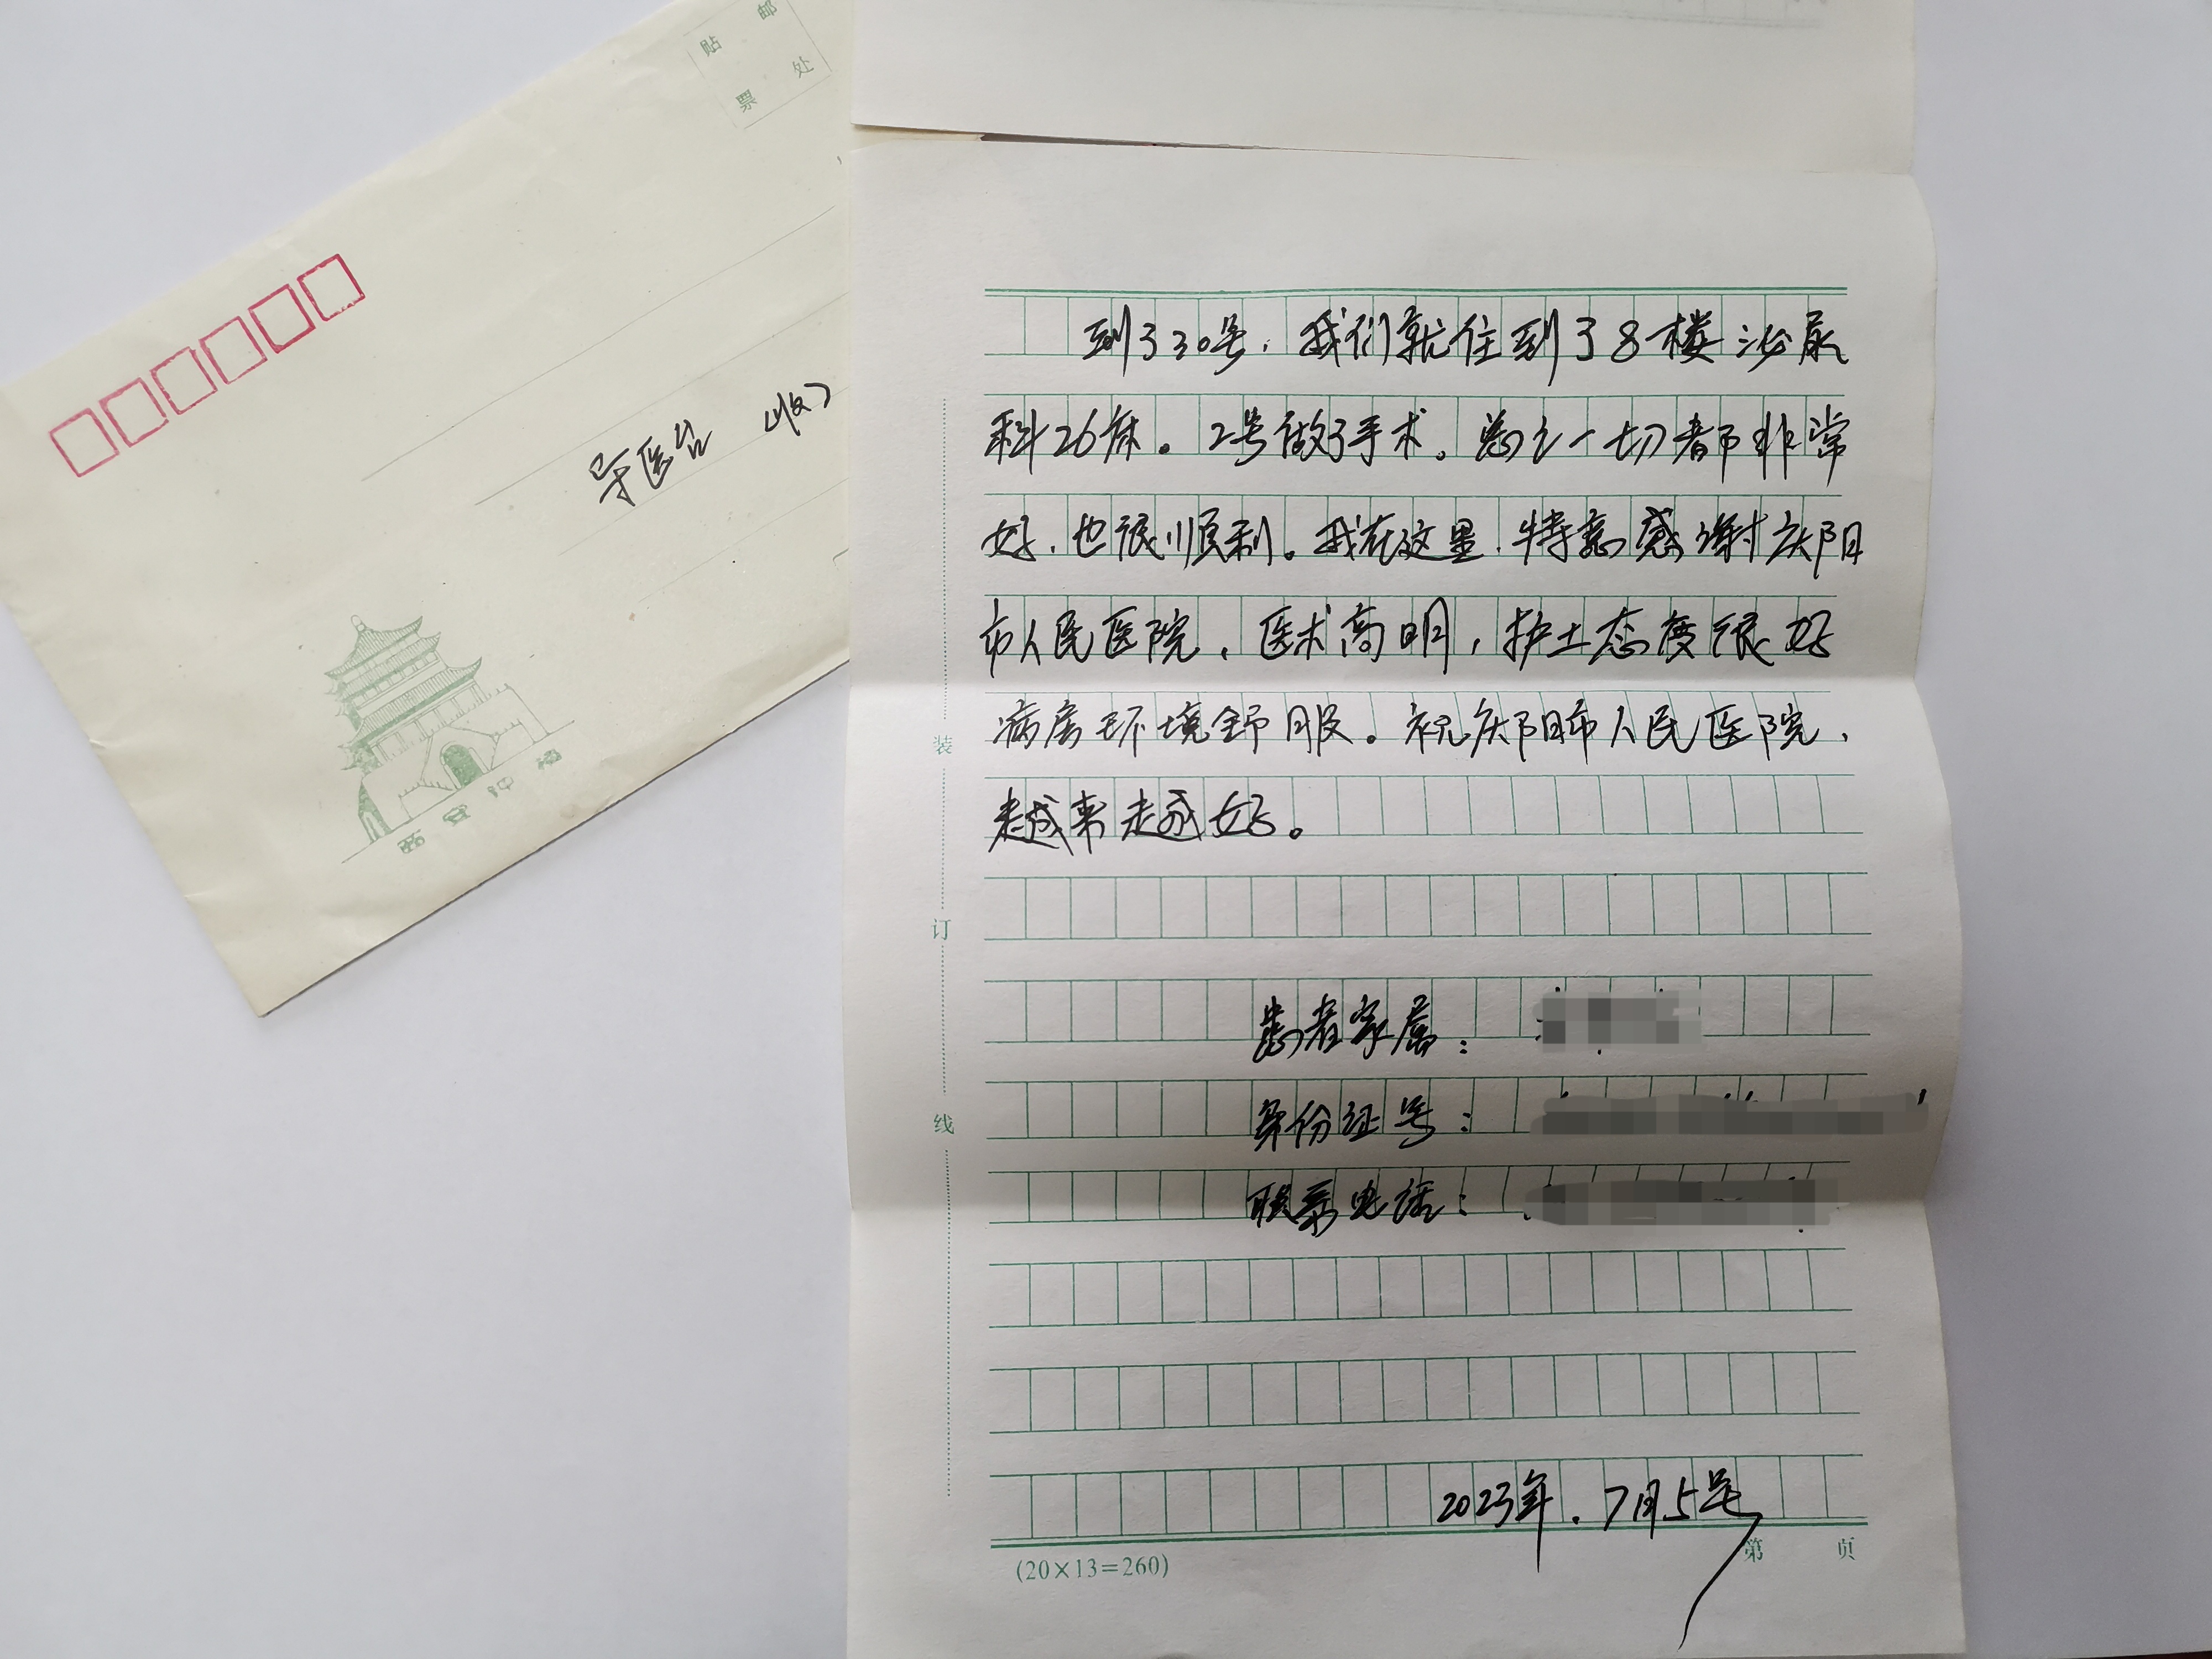 贴 邮
票 处
导医台 (收)
西安钟楼
到了30号，我们就住到了8楼泌尿
科26床。2号做了手术。总之一切都非常
好，也很顺利。我在这里，特意感谢庆阳
市人民医院，医术高明，护士态度很好
病房环境舒服。祝庆阳市人民医院，
越来越好。
患者家属：
身份证号：
联系电话：
2023年.7月5号
装
订
线
(20×13=260)
第 页